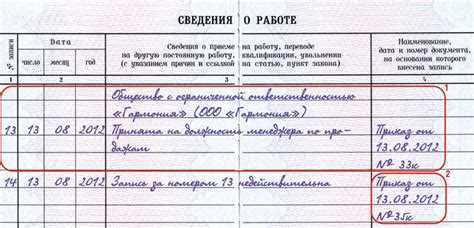 СВЕДЕНИЯ О РАБОТЕ
№ записи
Дата
Сведения о приеме на работу, переводе
на другую постоянную работу, квалификации, увольнении
(с указанием причин и ссылкой на статью, пункт закона)
Наименование,
дата и номер документа,
на основании которого
внесена запись
число месяц год
1 2 3 4
1
Общество с ограниченной ответственностью
«Гармония» (ООО «Гармония»)
13 13 08 2012 Принята на должность менеджера по про-
дажам
Приказ от
13.08.2012
№ 33к
2
14 13 08 2012 Запись за номером 13 недействительна
Приказ от
13.08.2012
№ 35к